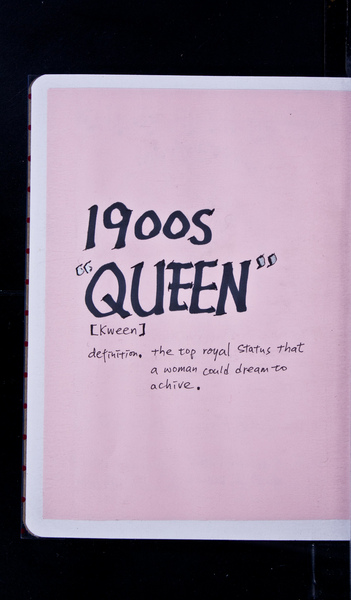 1900s
"QUEEN"
[Kween]
definition. the top royal status that
a woman could dream to
achive.